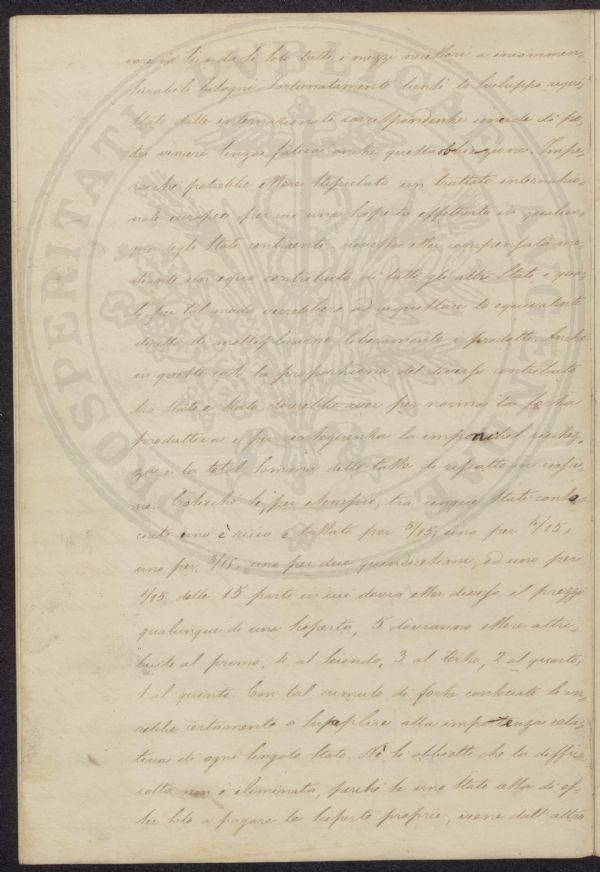 in sè e da sè solo tutti i mezzi necessari a incommen-
surabili bisogni. Fortunatamente lo sviluppo acqui-
stato dalle internazionali corrispondenze concede di po-
ter vincere senza fatica anche questa obbiezione. Impe-
rocchè potrebbe essere stipulato un trattato internazio-
nale europeo per cui una scoperta effettuata in qualun-
que degli Stati contraenti dovesse esser compensata me-
diante un equo contributo di tutti gli altri Stati, i qua-
li per tal modo verrebbero ad acquistare lo equivalente
diritto di moltiplicarne liberamente i prodotti. Anche
in questo caso la proporzione del diverso contributo
tra Stato e Stato dovrebbe aver per norma la forza
produttiva e per conseguenza la imponibil ricchez-
za e la total somma delle tasse di rispettivo
Cosicchè se per esempio, tra cinque Stati conso-
ciati uno è ricco e tassato per 5/15, uno per 4/15,
uno per 3/15, uno per due quindicesimi, ed uno per
1/15, delle 15 parti in cui dovrà esser diviso il prezzo
qualunque di una scoperta, 5 dovranno essere attri-
buite al primo, 4 al secondo, 3 al terzo, 2 al quarto,
1 al quinto. Con tal cumulo di forze consociate si an-
drebbe certamente a supplire alla impotenza rela-
tiva di ogni singolo Stato. Nè si obbietti che la diffi-
coltà non è eliminata, perchè se uno Stato cessa di es-
ser solo a pagare le scoperte proprie, viene dall'altro